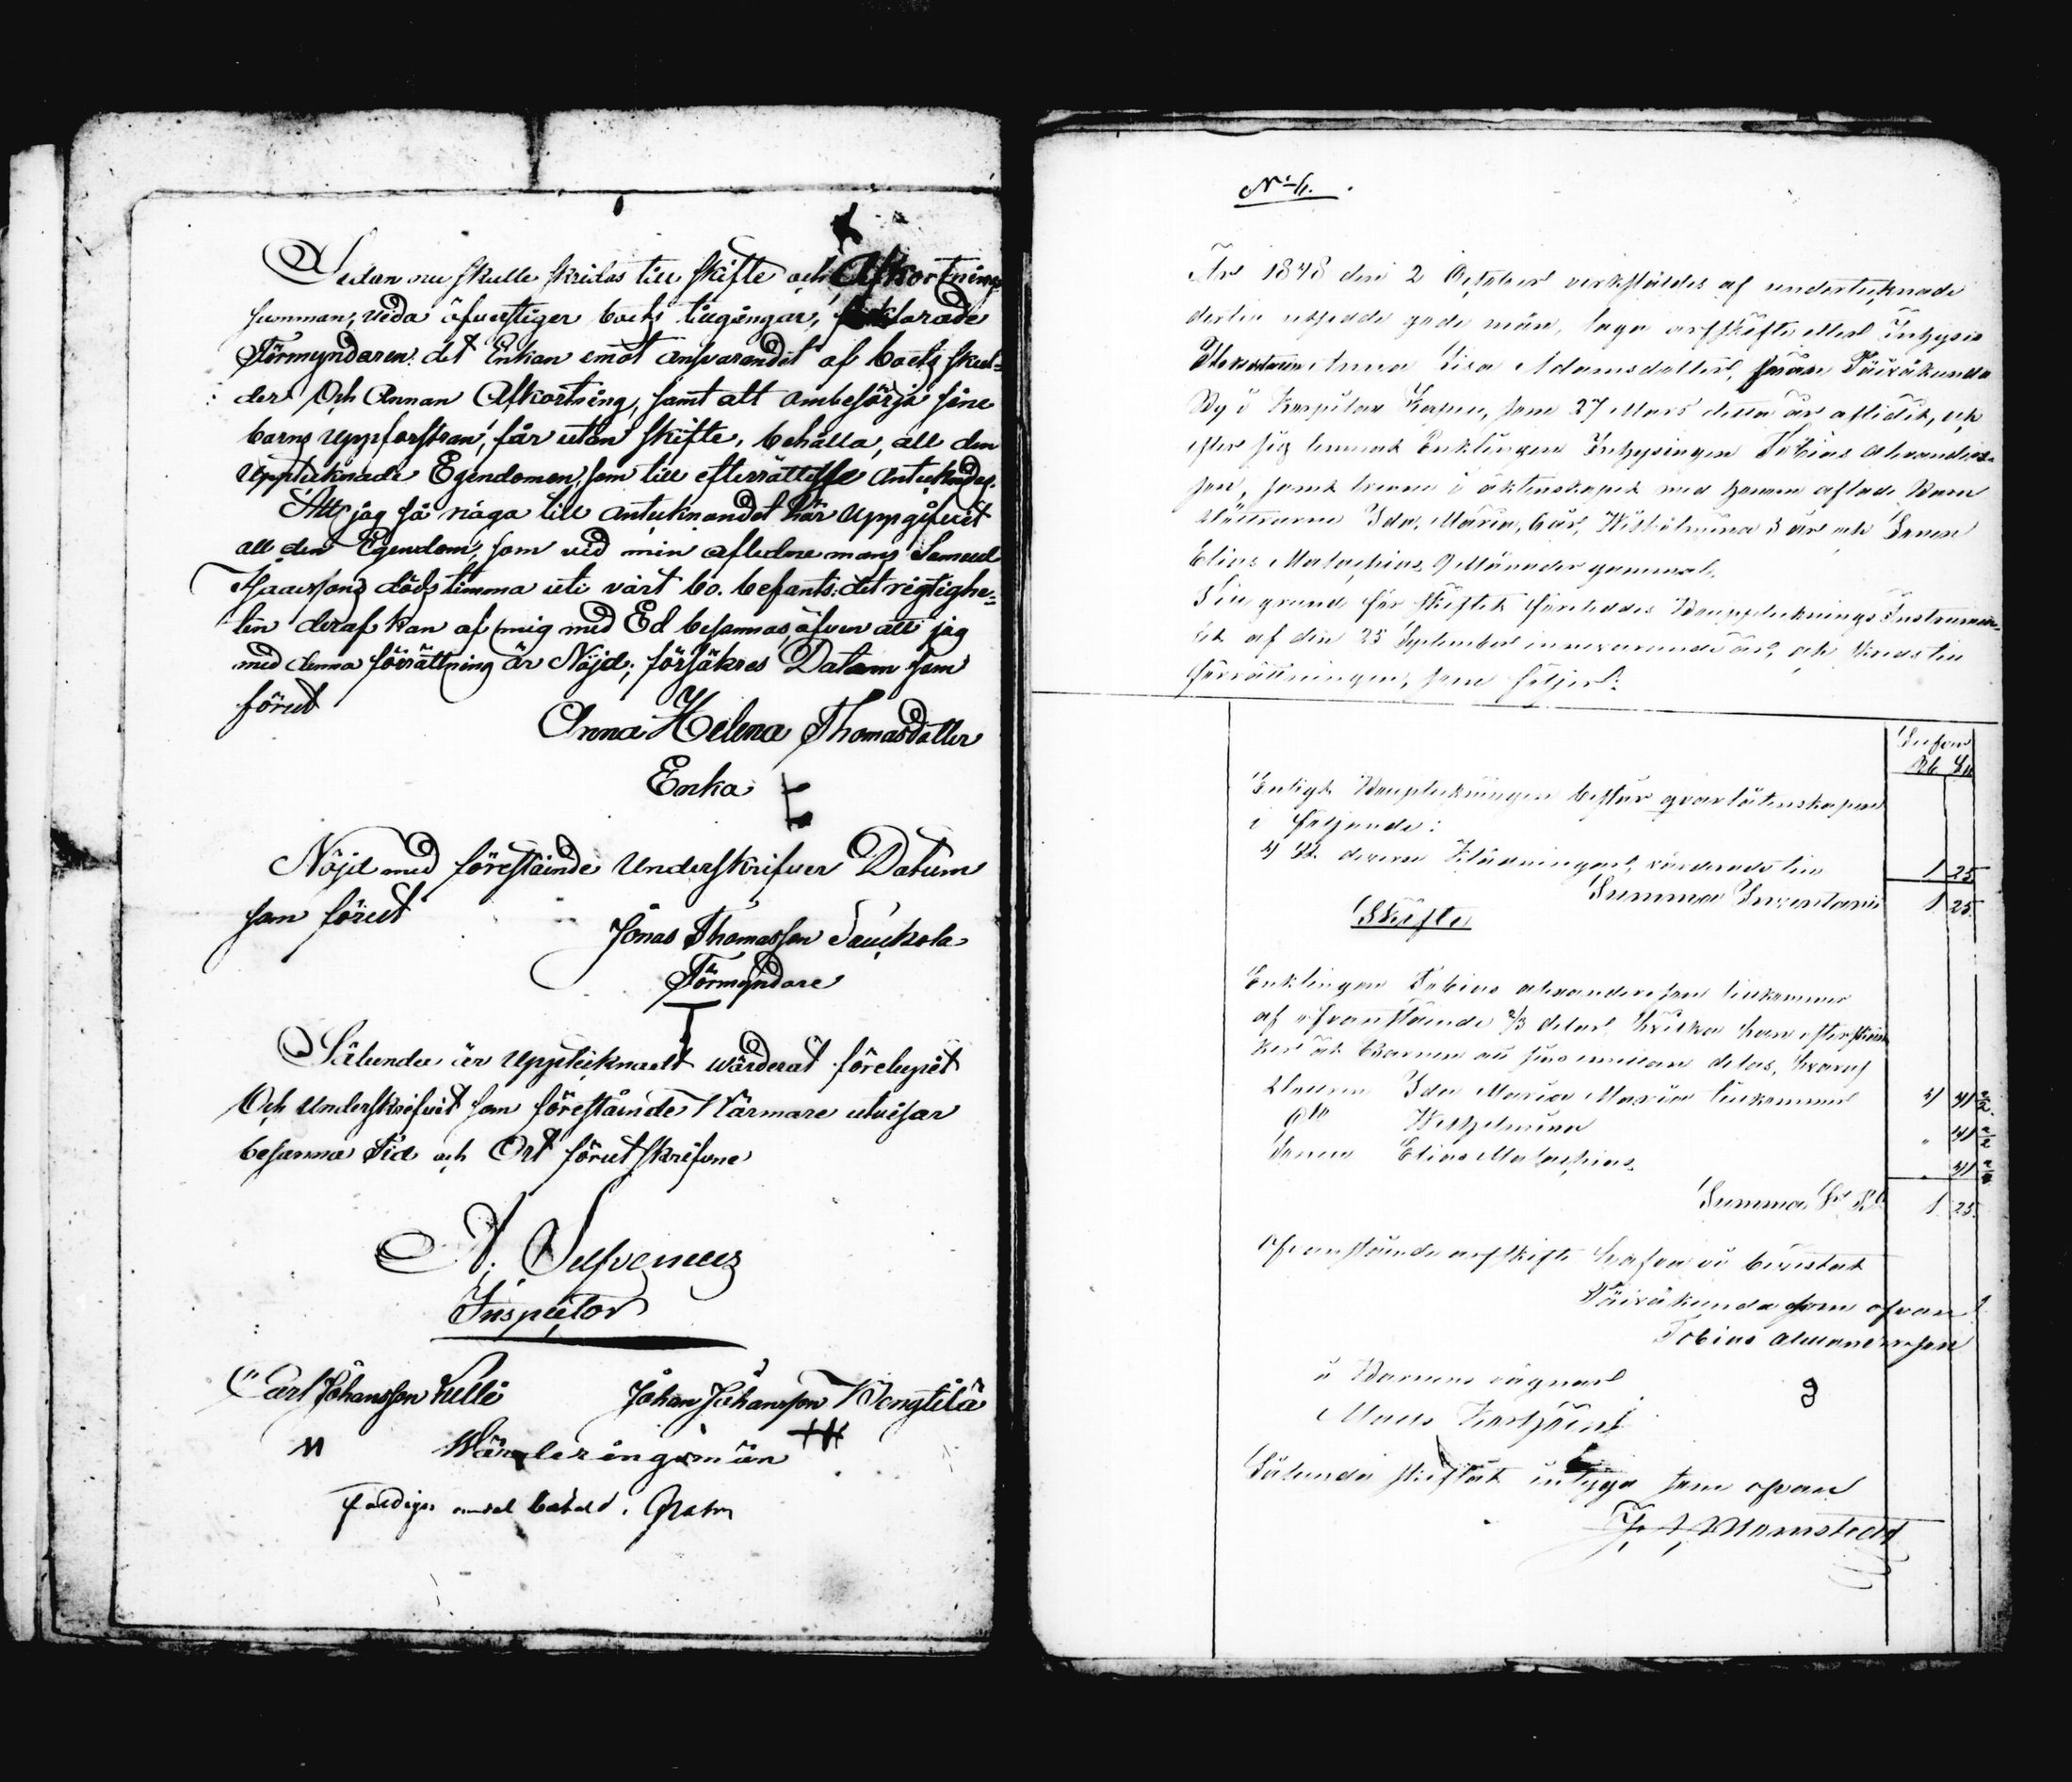 Sedan nu skulle skridas till skifte och Afkortnings
summan, vida öfverstiger boets tillgångar, förklarade
Förmyndaren: det Enkan emot ansvarandet af boets skul-
der Och Annan Afkortning, samt att ambesörja sine
barns uppfostran, får utan skifte, behålla, all den
upptecknade Egendomen, som till efterrättelse Antecknades.
Att jag så noga till antecknandet här uppgifvit
all den Egendom, som vid min aflidne mans Samuel
Isaacssons dödstimma uti vårt bo. befants: det rigtighe-
ten deraf kan af mig med Ed besannas, äfven att jag
med denna förrättning är Nöjd; försäkres Datum som
förut
Anna Helena Thomasdotter
Enka
Nöjd med förestående Underskrifver Datum
som förut
Jonas Thomasson Sauckola
Förmyndare
Sålunda är Upptecknadt wärderat förelupit
Och Underskrifvit som förestående Närmare utvisar
besamma Tid och Ort förutskrifvne
A. Selfvenius
Inspector
Carl Johansson Lelli Johan Johansson Kongtilä
Wärderingsmän
Fattiges andel betald.
No 6.
År 1848 den 2 October verkställdes af undertecknade
dertill utsedde gode män, laga arfskifte efter Inhyses
Anna Lisa Adamsdotter, från Päiväkunda
By i Kapell, som 27 Mars detta år aflidit, och
efter sig lemnat Enklingen Inhysingen Tobias Alexanders-
son, samt trenne i äktenskapet med honom aflade Barn
Döttrarne Ida Maria, 6 år, Wilhelmina 3 år och Sonen
Elias Malachias 9 Månader gammal.
Till grund för skiftet företeddes Bouppteknings Instrumen-
tet af den 25 September innevarande år, och skreds till
förrättningen, som följer:
Silfver
Rb Sk
Enligt Bouppteckningen består qvarlåtenskapen
i följande:
St. diverse Klädningar, värderade till 1 25
Summa Inventarii 1 25.
Skifte
Enklingen Tobias Alexandersson tillkommer
af ofvanstående 2/3 delar hvilka han efterskän-
ker åt Barnen att sins emellan delas, hvaraf
Dottren Ida Maria Maria tillkommer 41 2/3.
Dto Wilhelmina " 41 2/3
Sonen Elias Malachias. " 41 2/3
Summa Sr Rbl 1 25.
Ofvanstående arfskifte hafva vi bevistat
Päiväkunda som ofvan
Tobias Alexandersson
å Barnens vägnar
Matts
Sålunda skiftat intyga som ofvan